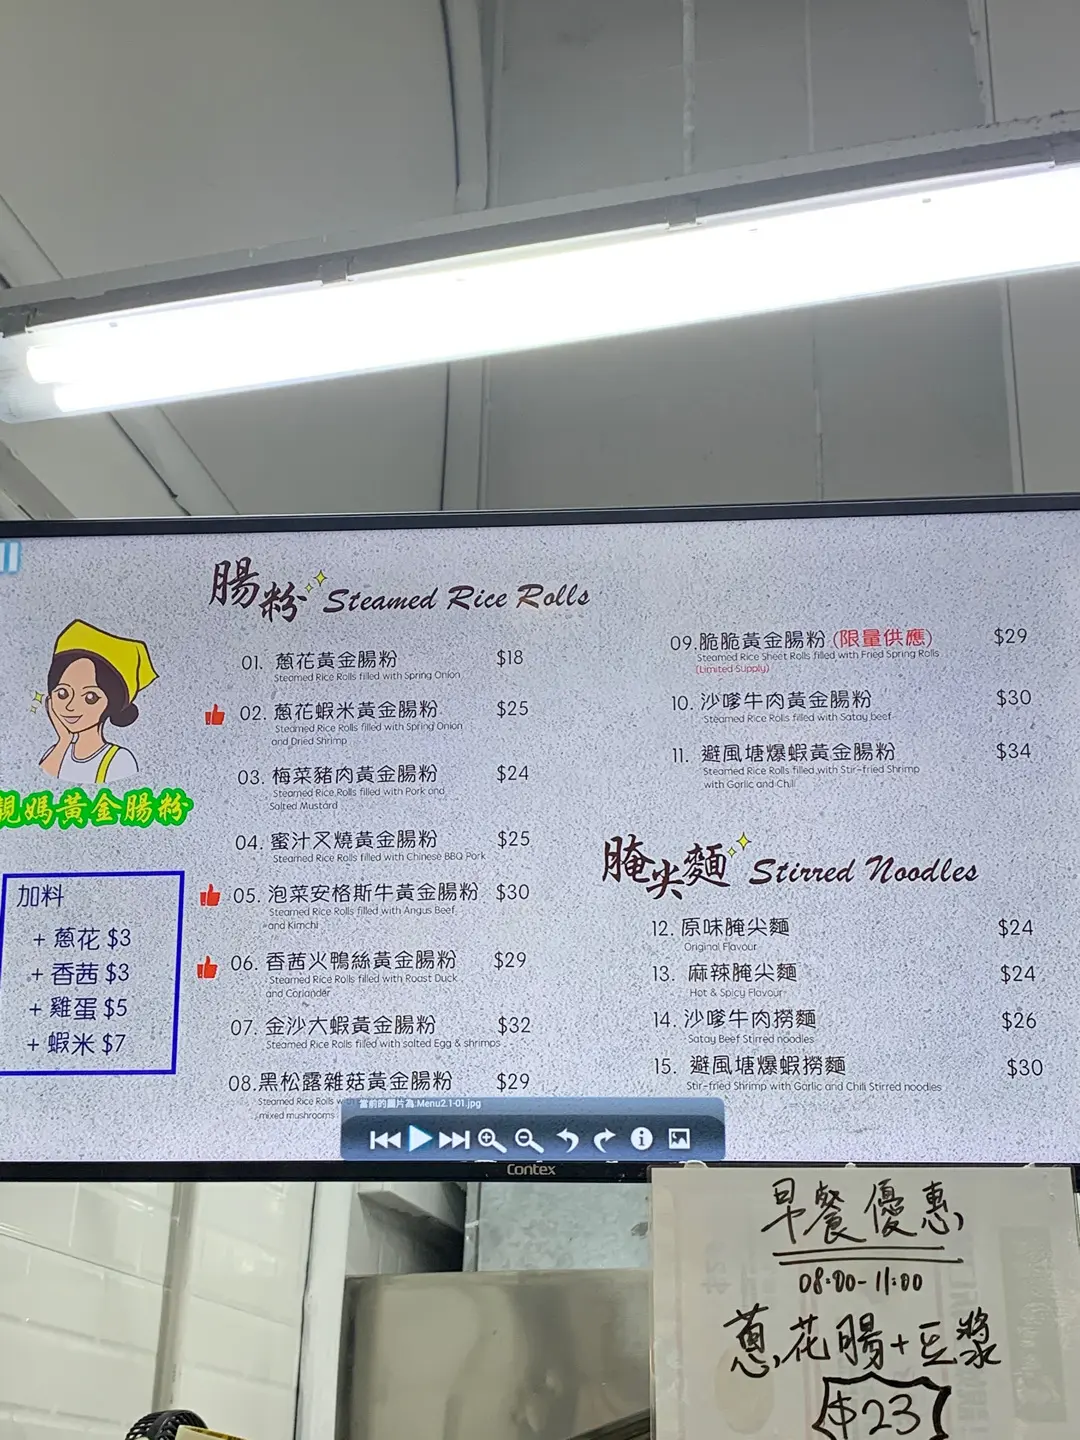 腸粉 Steamed Rice Rolls
01. 蔥花黃金腸粉 $18
Steamed Rice Rolls filled with Spring Onion
02. 蔥花蝦米黃金腸粉 $25
Steamed Rice Rolls filled with Spring Onion
and Dried Shrimp
03. 梅菜豬肉黃金腸粉 $24
Steamed Rice Rolls filled with Pork and
Salted Mustard
04. 蜜汁叉燒黃金腸粉 $25
Steamed Rice Rolls filled with Chinese BBQ Pork
05. 泡菜安格斯牛黃金腸粉 $30
Steamed Rice Rolls filled with Angus Beef
and Kimchi
06. 香茜火鴨絲黃金腸粉 $29
Steamed Rice Rolls filled with Roast Duck
and Coriander
07. 金沙大蝦黃金腸粉 $32
Steamed Rice Rolls filled with salted Egg & shrimps
08. 黑松露雜菇黃金腸粉 $29
Steamed Rice Rolls
mixed mushrooms
09. 脆脆黃金腸粉 (限量供應) $29
Steamed Rice Sheet Rolls filled with Fried Spring Rolls
(Limited Supply)
10. 沙嗲牛肉黃金腸粉 $30
Steamed Rice Rolls filled with Satay beef
11. 避風塘爆蝦黃金腸粉 $34
Steamed Rice Rolls filled with Stir-fried Shrimp
with Garlic and Chili
腌尖麵 Stirred Noodles
12. 原味腌尖麵 $24
Original Flavour
13. 麻辣腌尖麵 $24
Hot & Spicy Flavour
14. 沙嗲牛肉撈麵 $26
Satay Beef Stirred noodles
15. 避風塘爆蝦撈麵 $30
Stir-fried Shrimp with Garlic and Chili Stirred noodles
親媽黃金腸粉
加料
+ 蔥花 $3
+ 香茜 $3
+ 雞蛋 $5
+ 蝦米 $7
當前的圖片為:Menu2.1-01.jpg
Contex
早餐優惠
08:00-11:00
蔥花腸+豆漿
$23